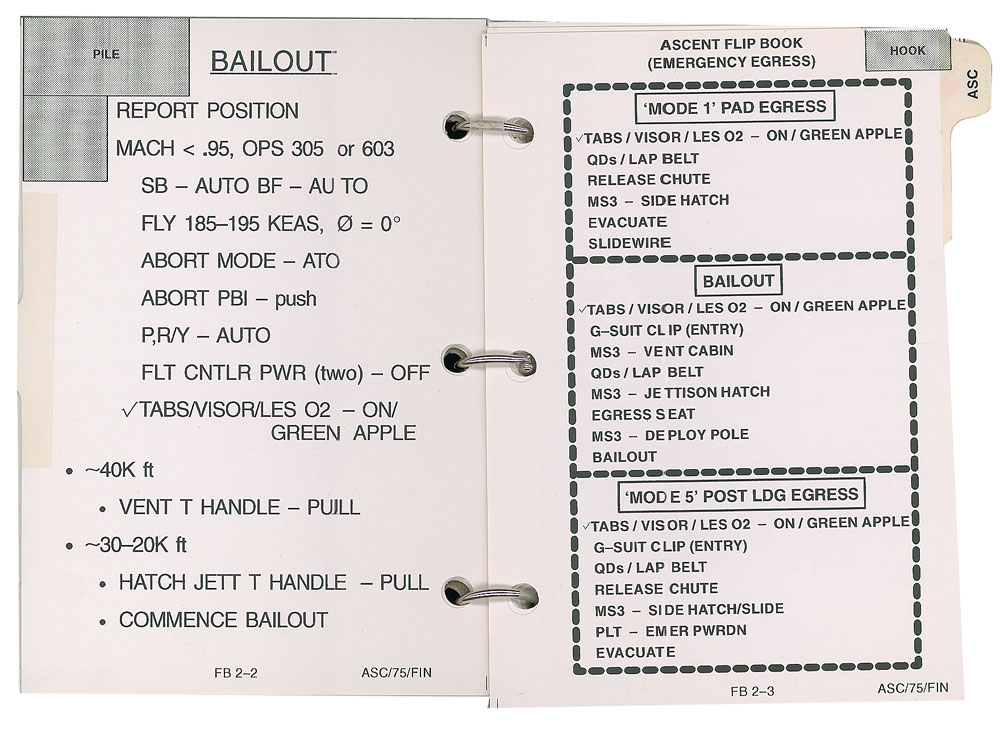 PILE
BAILOUT
REPORT POSITION
MACH < .95, OPS 305 or 603
SB – AUTO BF – AU TO
FLY 185–195 KEAS, Ø = 0°
ABORT MODE – ATO
ABORT PBI – push
P,R/Y – AUTO
FLT CNTLR PWR (two) – OFF
✓TABS/VISOR/LES O2 – ON/
GREEN APPLE
• ~40K ft
• VENT T HANDLE – PULL
• ~30–20K ft
• HATCH JETT T HANDLE – PULL
• COMMENCE BAILOUT
FB 2–2 ASC/75/FIN
ASCENT FLIP BOOK
(EMERGENCY EGRESS)
HOOK
ASC
'MODE 1' PAD EGRESS
✓TABS / VISOR / LES O2 – ON / GREEN APPLE
QDs / LAP BELT
RELEASE CHUTE
MS3 – SIDE HATCH
EVACUATE
SLIDEWIRE
BAILOUT
✓TABS / VISOR / LES O2 – ON / GREEN APPLE
G–SUIT CLIP (ENTRY)
MS3 – VENT CABIN
QDs / LAP BELT
MS3 – JETTISON HATCH
EGRESS SEAT
MS3 – DEPLOY POLE
BAILOUT
'MODE 5' POST LDG EGRESS
✓TABS / VISOR / LES O2 – ON / GREEN APPLE
G–SUIT CLIP (ENTRY)
QDs / LAP BELT
RELEASE CHUTE
MS3 – SIDE HATCH/SLIDE
PLT – EMER PWRDN
EVACUATE
FB 2–3 ASC/75/FIN